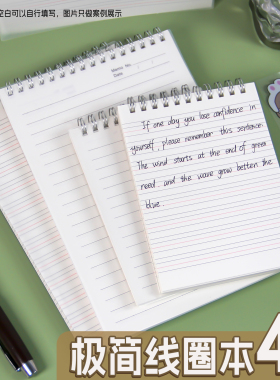 空白可以自行填写，图片只做案例展示
Memo No.
Date
If one day you lose confidence in
yourself, please remember this sentence:
The wind starts at the end of green
need and the wave grow betten the
blue.
极简线圈本4